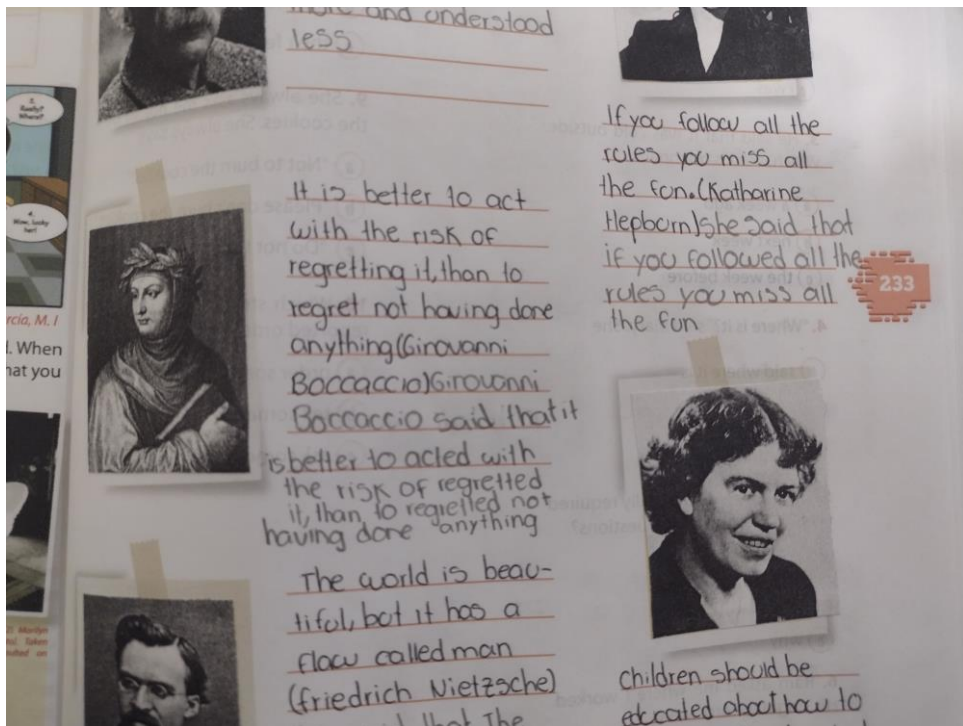 more and understood
less
It is better to act
with the risk of
regretting it, than to
regret not having done
anything (Girovanni
Boccaccio) Girovonni
Boccaccio said that it
is better to acted with
the risk of regretted
it, than to regretted not
having done anything
The world is beau-
tiful, but it has a
flaw called man
(friedrich Nietzsche)
that The
If you follow all the
rules you miss all
the fun. (Katharine
Hepborn) she said that
if you followed all the
rules you miss all
the fun
233
children should be
educated about how to
2. Really? Where?
4. Wow, lucky her!
rcía, M. I
. When
hat you
Marilyn
Taken